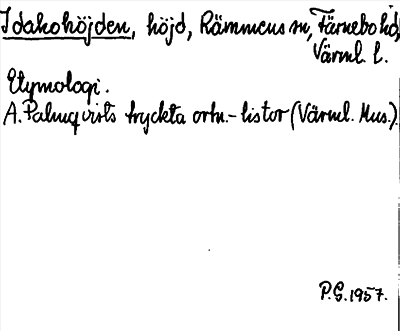 Idakohöjden, höjd, Rämmens sn, Färnebo hd,
Värml. l.
Etymologi.
A. Palmqvists tryckta ortn.-listor (Värml. Mus.).
P.G. 1957.